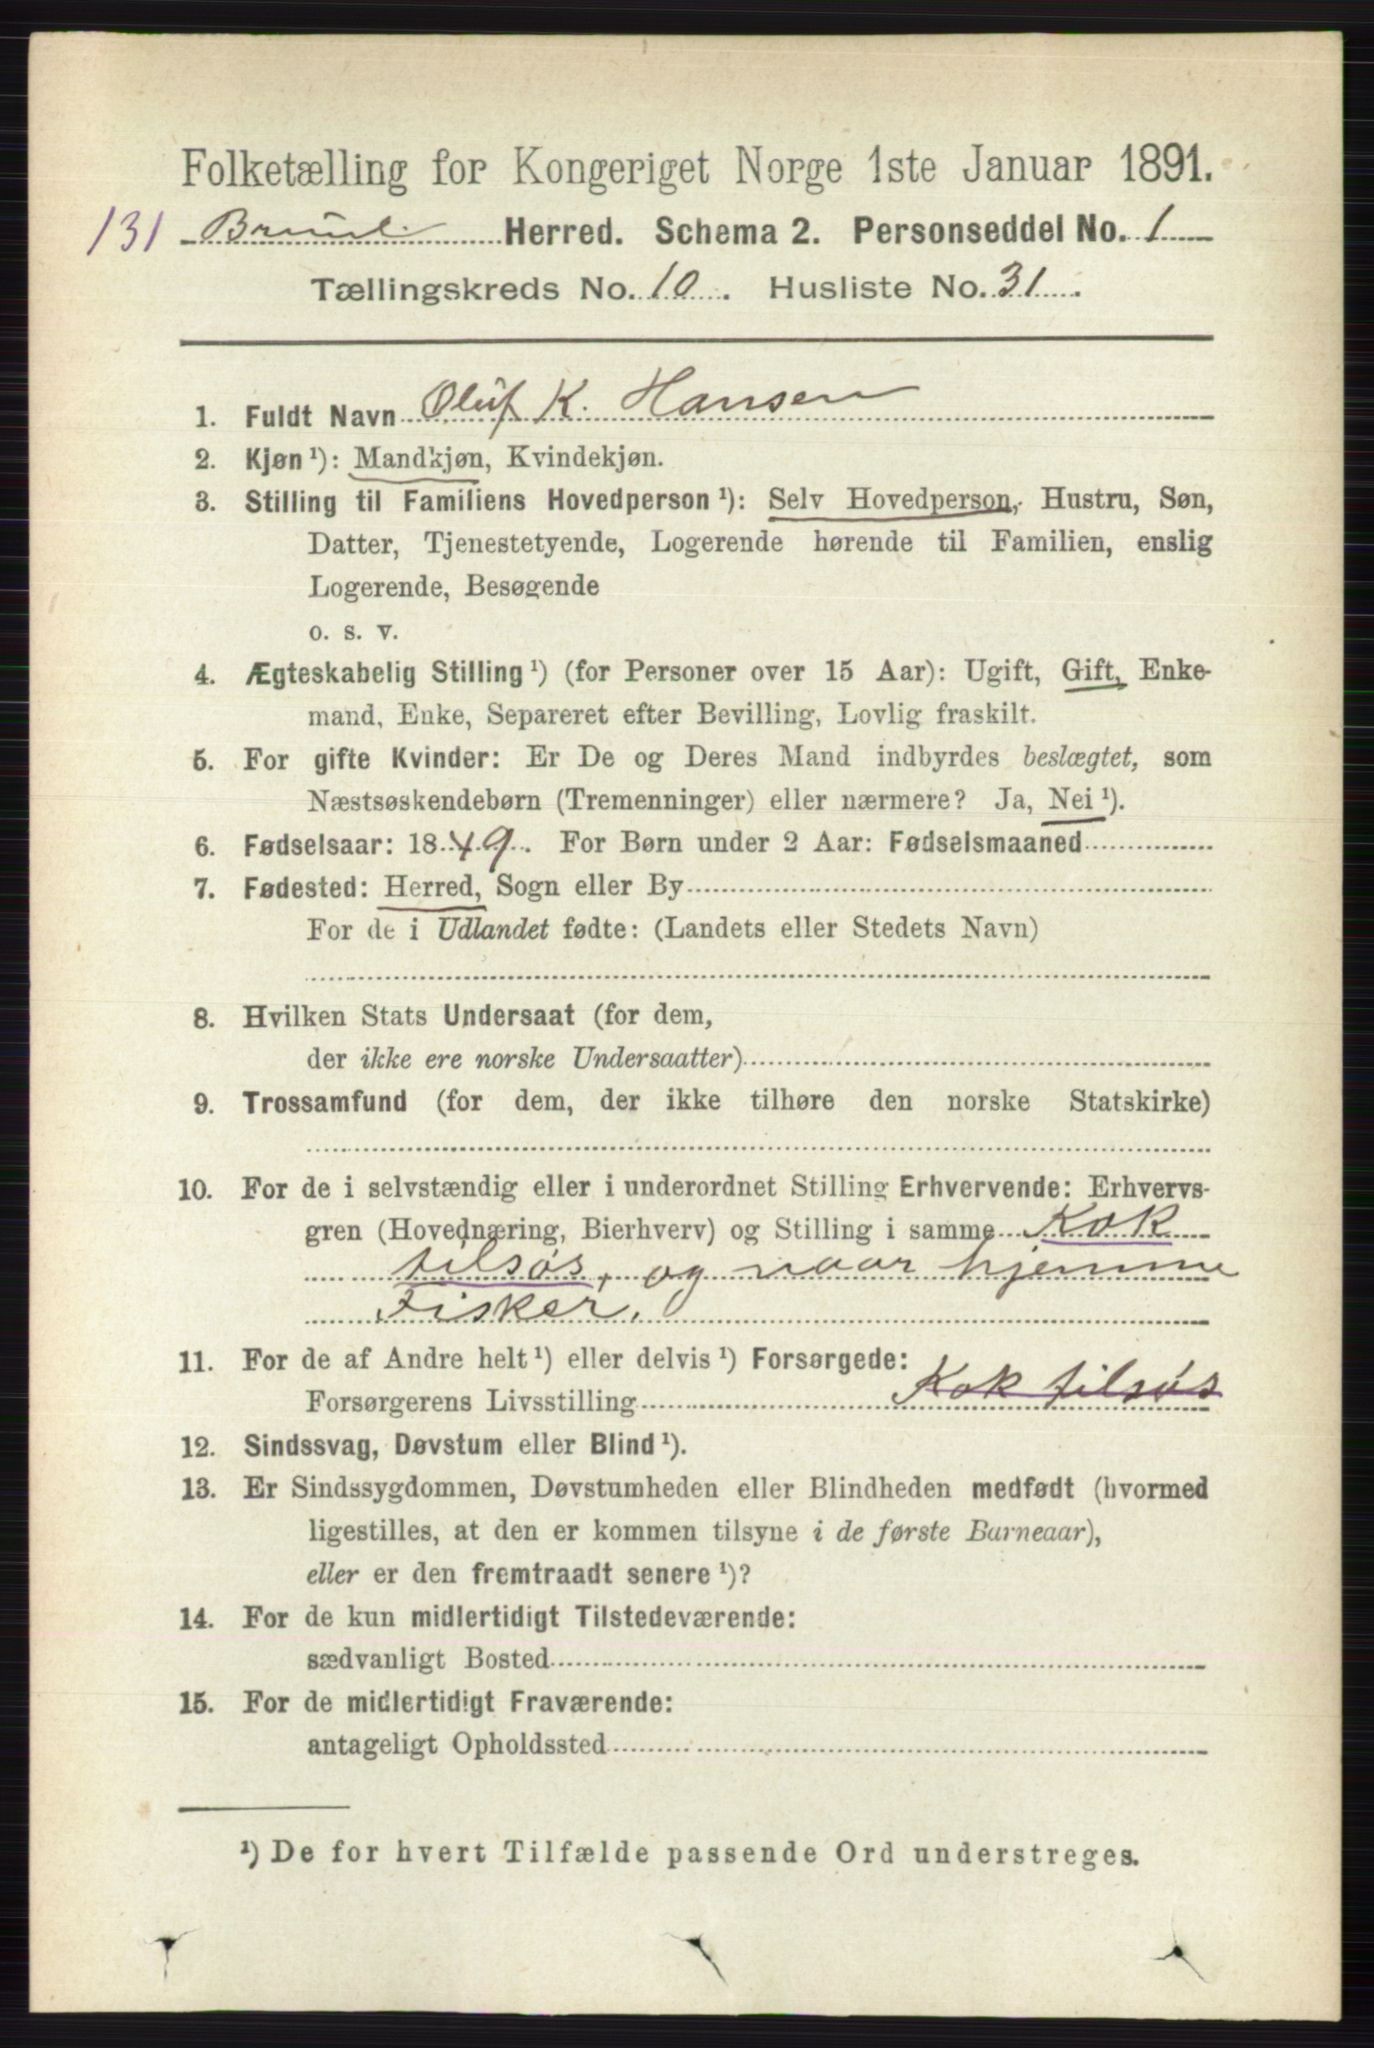 Folketælling for Kongeriget Norge 1ste Januar 1891.
131 Brunl. Herred. Schema 2. Personseddel No. 1
Tællingskreds No. 10. Husliste No. 31.
1. Fuldt Navn Oluf K. Hansen
2. Kjøn ¹): Mandkjøn, Kvindekjøn.
3. Stilling til Familiens Hovedperson ¹): Selv Hovedperson, Hustru, Søn,
Datter, Tjenestetyende, Logerende hørende til Familien, enslig
Logerende, Besøgende
o. s. v.
4. Ægteskabelig Stilling ¹) (for Personer over 15 Aar): Ugift, Gift, Enke-
mand, Enke, Separeret efter Bevilling, Lovlig fraskilt.
5. For gifte Kvinder: Er De og Deres Mand indbyrdes beslægtet, som
Næstsøskendebørn (Tremenninger) eller nærmere? Ja, Nei ¹).
6. Fødselsaar: 1849. For Børn under 2 Aar: Fødselsmaaned
7. Fødested: Herred, Sogn eller By
For de i Udlandet fødte: (Landets eller Stedets Navn)
8. Hvilken Stats Undersaat (for dem,
der ikke ere norske Undersaatter)
9. Trossamfund (for dem, der ikke tilhøre den norske Statskirke)
10. For de i selvstændig eller i underordnet Stilling Erhvervende: Erhvervs-
gren (Hovednæring, Bierhverv) og Stilling i samme Kok
tilsøs, og naar hjemme
Fisker.
11. For de af Andre helt ¹) eller delvis ¹) Forsørgede:
Forsørgerens Livsstilling Kok tilsøs
12. Sindssvag, Døvstum eller Blind ¹).
13. Er Sindssygdommen, Døvstumheden eller Blindheden medfødt (hvormed
ligestilles, at den er kommen tilsyne i de første Barneaar),
eller er den fremtraadt senere ¹)?
14. For de kun midlertidigt Tilstedeværende:
sædvanligt Bosted
15. For de midlertidigt Fraværende:
antageligt Opholdssted
¹) De for hvert Tilfælde passende Ord understreges.